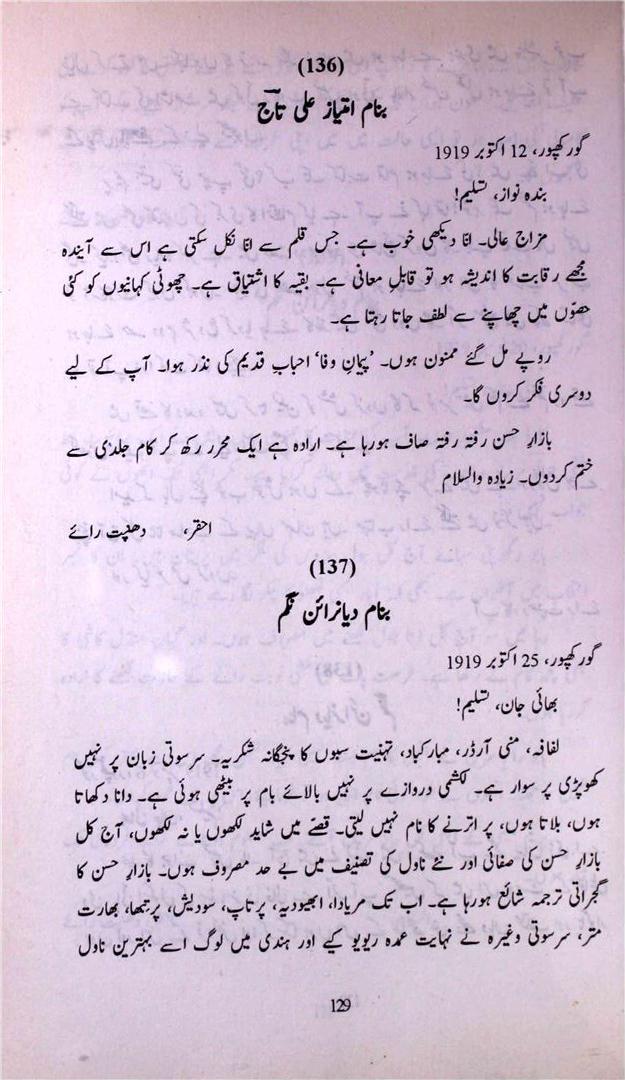 (136)
بنام امتیاز علی تاج
گورکھپور، 12 اکتوبر 1919
بندہ نواز، تسلیم!
مزاج عالی۔ انّا دیکھی خوب ہے۔ جس قلم سے انّا نکل سکتی ہے اس سے آیندہ
مجھے رقابت کا اندیشہ ہو تو قابلِ معانی ہے۔ بقیہ کا اشتیاق ہے۔ چھوٹی کہانیوں کو کئی
حصّوں میں چھاپنے سے لطف جاتا رہتا ہے۔
روپے مل گئے ممنون ہوں۔ ’پیمانِ وفا‘ احبابِ قدیم کی نذر ہوا۔ آپ کے لیے
دوسری فکر کروں گا۔
بازارِ حسن رفتہ رفتہ صاف ہورہا ہے۔ ارادہ ہے ایک محرر رکھ کر کام جلدی سے
ختم کردوں۔ زیادہ والسلام
احقر، دھنپت رائے
(137)
بنام دیانرائن نگم
گورکھپور، 25 اکتوبر 1919
بھائی جان، تسلیم!
لفافہ، منی آرڈر، مبارکباد، تہنیت سبوں کا پنجگانہ شکریہ۔ سرسوتی زبان پر نہیں
کھوپڑی پر سوار ہے۔ لکشمی دروازے پر نہیں بالائے بام پر بیٹھی ہوئی ہے۔ دانا دکھاتا
ہوں، بلاتا ہوں، پر اترنے کا نام نہیں لیتی۔ قصّے میں شاید لکھوں یا نہ لکھوں، آج کل
بازارِ حسن کی صفائی اور نئے ناول کی تصنیف میں بے حد مصروف ہوں۔ بازارِ حسن کا
گجراتی ترجمہ شائع ہورہا ہے۔ اب تک مریادا، ابھیودیہ، پرتاپ، سودیش، پرتبھا، بھارت
متر، سرسوتی وغیرہ نے نہایت عمدہ ریویو کیے اور ہندی میں لوگ اسے بہترین ناول
129